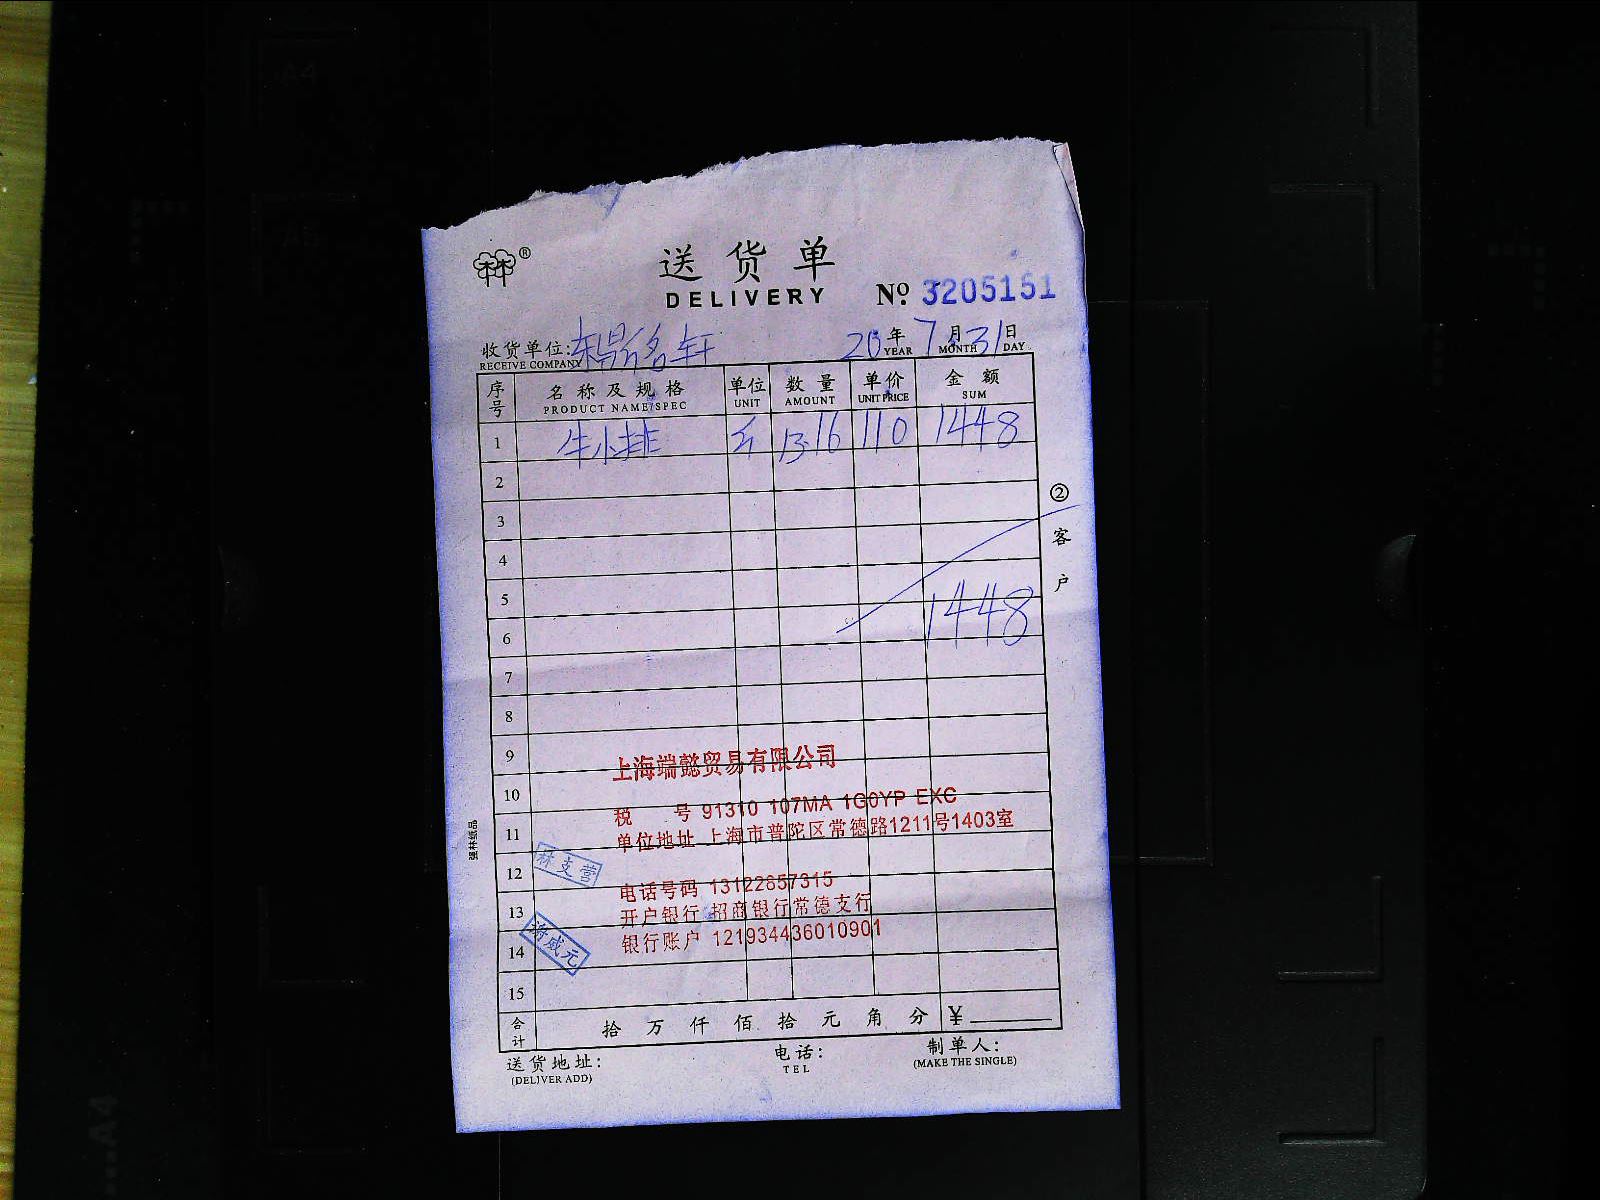 林®
送货单
DELIVERY
№ 3205151
收货单位:
RECEIVE COMPANY
20年 7月 31日
YEAR MONTH DAY
序号 名称及规格 单位 数量 单价 金额
PRODUCT NAME/SPEC UNIT AMOUNT UNIT PRICE SUM
1 牛小排 斤 13.16 110 1448
2
3
4
5
6 1448
7
8
9
10
11
12
13
14
15
② 客户
上海端懿贸易有限公司
税 号 91310 107MA 1G0YP EXC
单位地址 上海市普陀区常德路1211号1403室
电话号码 13122857315
开户银行 招商银行常德支行
银行账户 121934436010901
林支营
威元
强林纸品
合计 拾 万 仟 佰 拾 元 角 分 ¥
送货地址: 电话: 制单人:
(DELIVER ADD) TEL (MAKE THE SINGLE)
A4
A5
A4